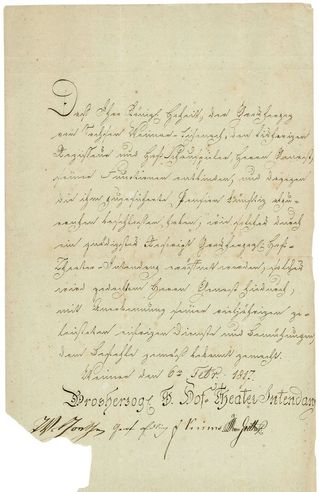 Daß Ihro Königl. Hoheit, der Großherzog
von Sachsen Weimar-Eisenach, den bisherigen
Regisseur und Hof-Schauspieler Herrn Genast,
seiner Functionen entbinden, und dagegen
die ihm zugesicherte Pension künftig
beschlossen haben, wie solches durch
ein gnädigstes Rescript Großherzogl. Hof-
Theater-Intendanz eröffnet worden, solches
wird gedachtem Herrn Genast hiedurch,
mit Anerkennung seiner vieljährigen ge-
leisteten eifrigen Dienste und Bemühungen,
dem Befehle gemäß bekannt gemacht.
Weimar den 6 Febr. 1817.
Großherzogl. S. Hof-Theater Intendanz
Goethe Graf Kirms